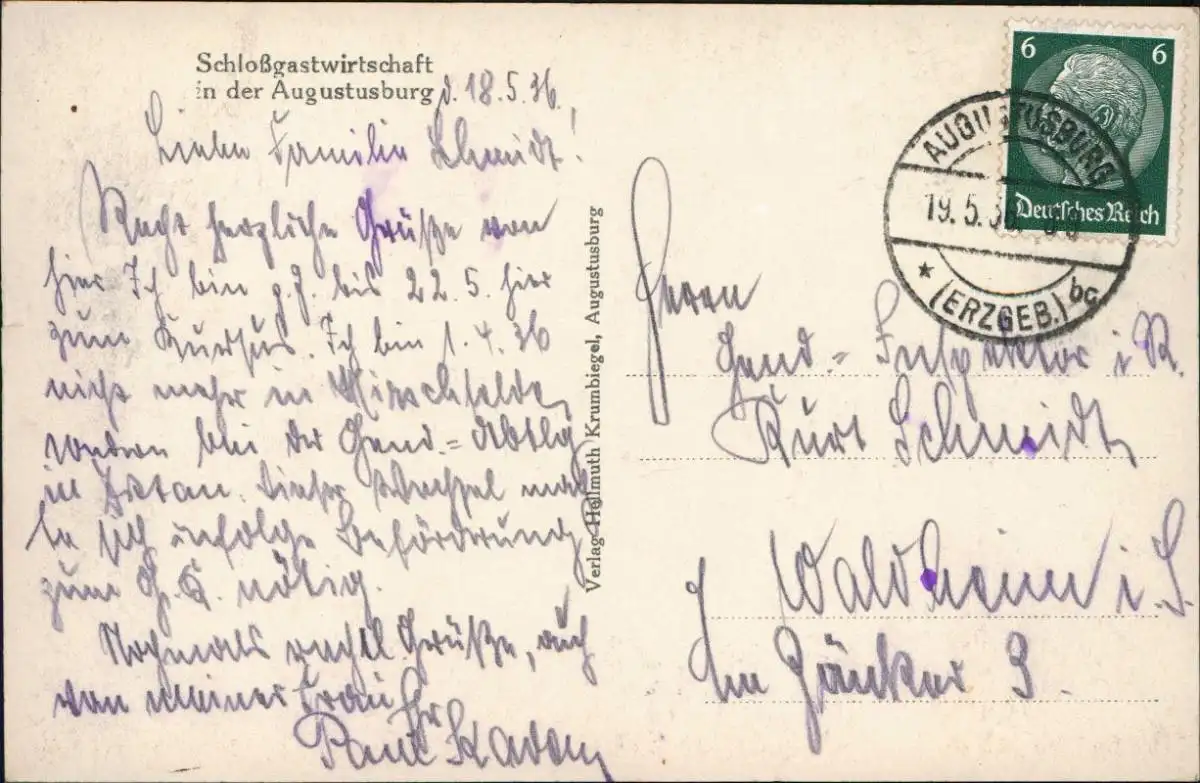 Schloßgastwirtschaft
in der Augustusburg, d. 18.5.36.
Liebe Familie Schmidt!
Recht herzliche Grüße von
hier Ich bin z.Z. bis 22.5. hier
zum Kursus. Ich bin 1.4.36
nicht mehr in Hirschfelde,
sondern bei der Gend.=Abtlg
in Zittau. Dieser Wechsel mach
te sich infolge Beförderung
zum G. nötig.
Nochmals rechtl. Grüße, auch
von meiner Frau
Ihr
Paul Kaden
Verlag Hellmuth Krumbiegel, Augustusburg
6 6
Deutsches Reich
AUGUSTUSBURG
19.5.36
(ERZGEB.) bc
Herrn
Gend=Inspektor i R.
Kurt Schmidt,
Waldheim i. S.
Im 9.